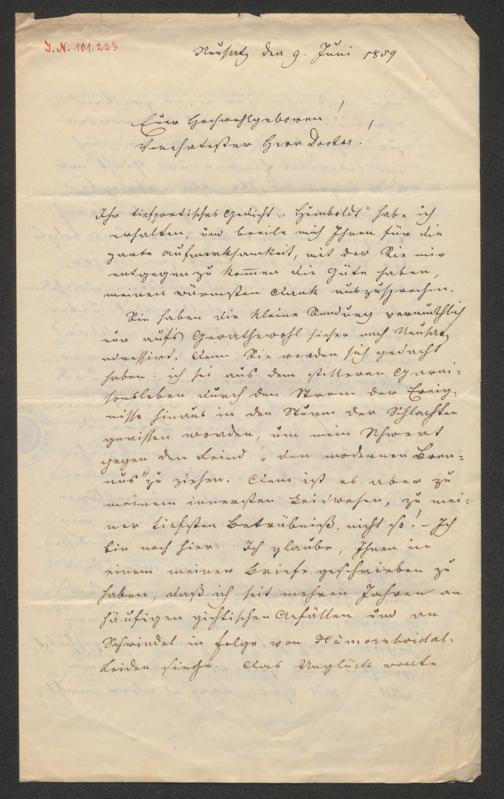 I. N. 101.223
Neusatz den 9. Juni 1859
Euer Hochwohlgeboren!
Verehrtester Herr Doctor!
Ihr tiefpoetisches Gedicht „Humboldt" habe ich
erhalten, und beeile mich Ihnen für die
zarte Aufmerksamkeit, mit der Sie mir
entgegen zu kommen die Güte haben,
meinen wärmsten Dank auszusprechen.
Sie haben die kleine Sendung vermuthlich
nur aufs Gerathewohl hieher nach Neusatz
adressirt. Denn Sie werden sich gedacht
haben: ich sei aus dem stilleren Garni-
sonsleben durch den Strom der Ereig-
nisse hinaus in den Sturm der Schlachten
gerissen worden, um mein Schwert
gegen den Feind „den modernen Bren-
nus" zu ziehen. Dem ist es aber zu
meinem innersten Leidwesen, zu mei-
ner tiefsten Betrübniß, nicht so! – Ich
bin noch hier. Ich glaube, Ihnen in
einem meiner Briefe geschrieben zu
haben, daß ich seit mehren Jahren an
häufigen gichtischen Anfällen und an
Schwindel in Folge von Hämorrhoidal-
Leiden sieche. Das Unglück wollte